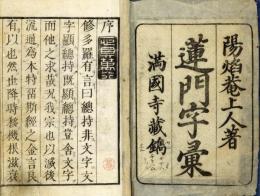 陽焰菴上人著
蓮門字彙
満國寺藏鐫
序
修多羅有言曰總持非文字文
字顯總持既顯總持豈舍文字
而他之求哉況我宗也以滅後
流通為本特留斯經之金言良
有以也然世降時移機根滅衰